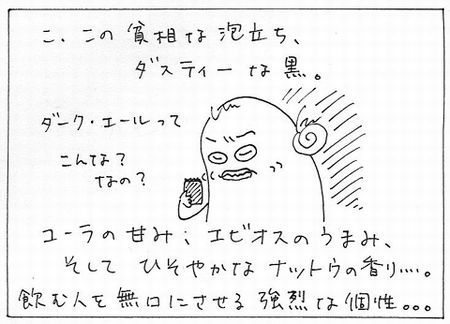 こ、この貧相な泡立ち、
ダスティーな黒。
ダーク・エールって
こんな?
なの?
コーラの甘み；エビオスのうまみ、
そして ひそやかな ナットウの香り……。
飲む人を無口にさせる強烈な個性。。。